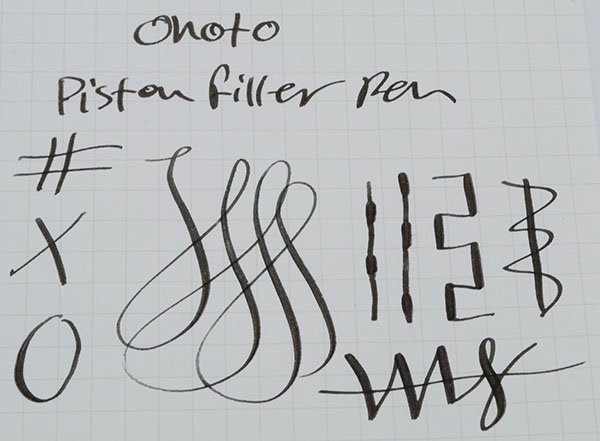 Onoto
Piston filler Pen
#
X
O